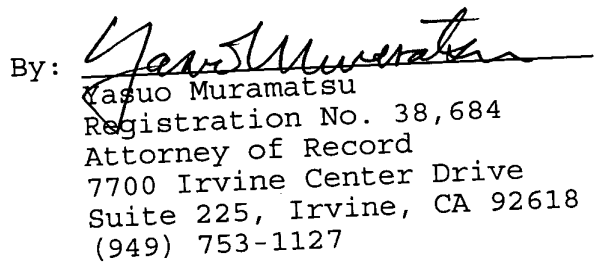 By: Yasuo Muramatsu
Yasuo Muramatsu
Registration No. 38,684
Attorney of Record
7700 Irvine Center Drive
Suite 225, Irvine, CA 92618
(949) 753-1127